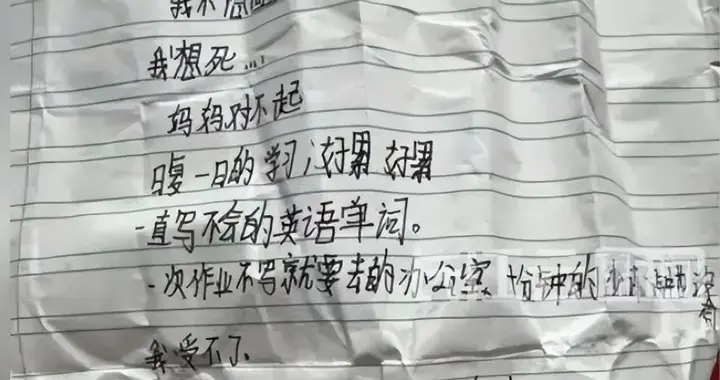 我不想
我想死...
妈妈对不起
日复一日的学习,好累 好累
一直写不会的英语单词。
一次作业不写就要去的办公室 十分钟的
我受不了